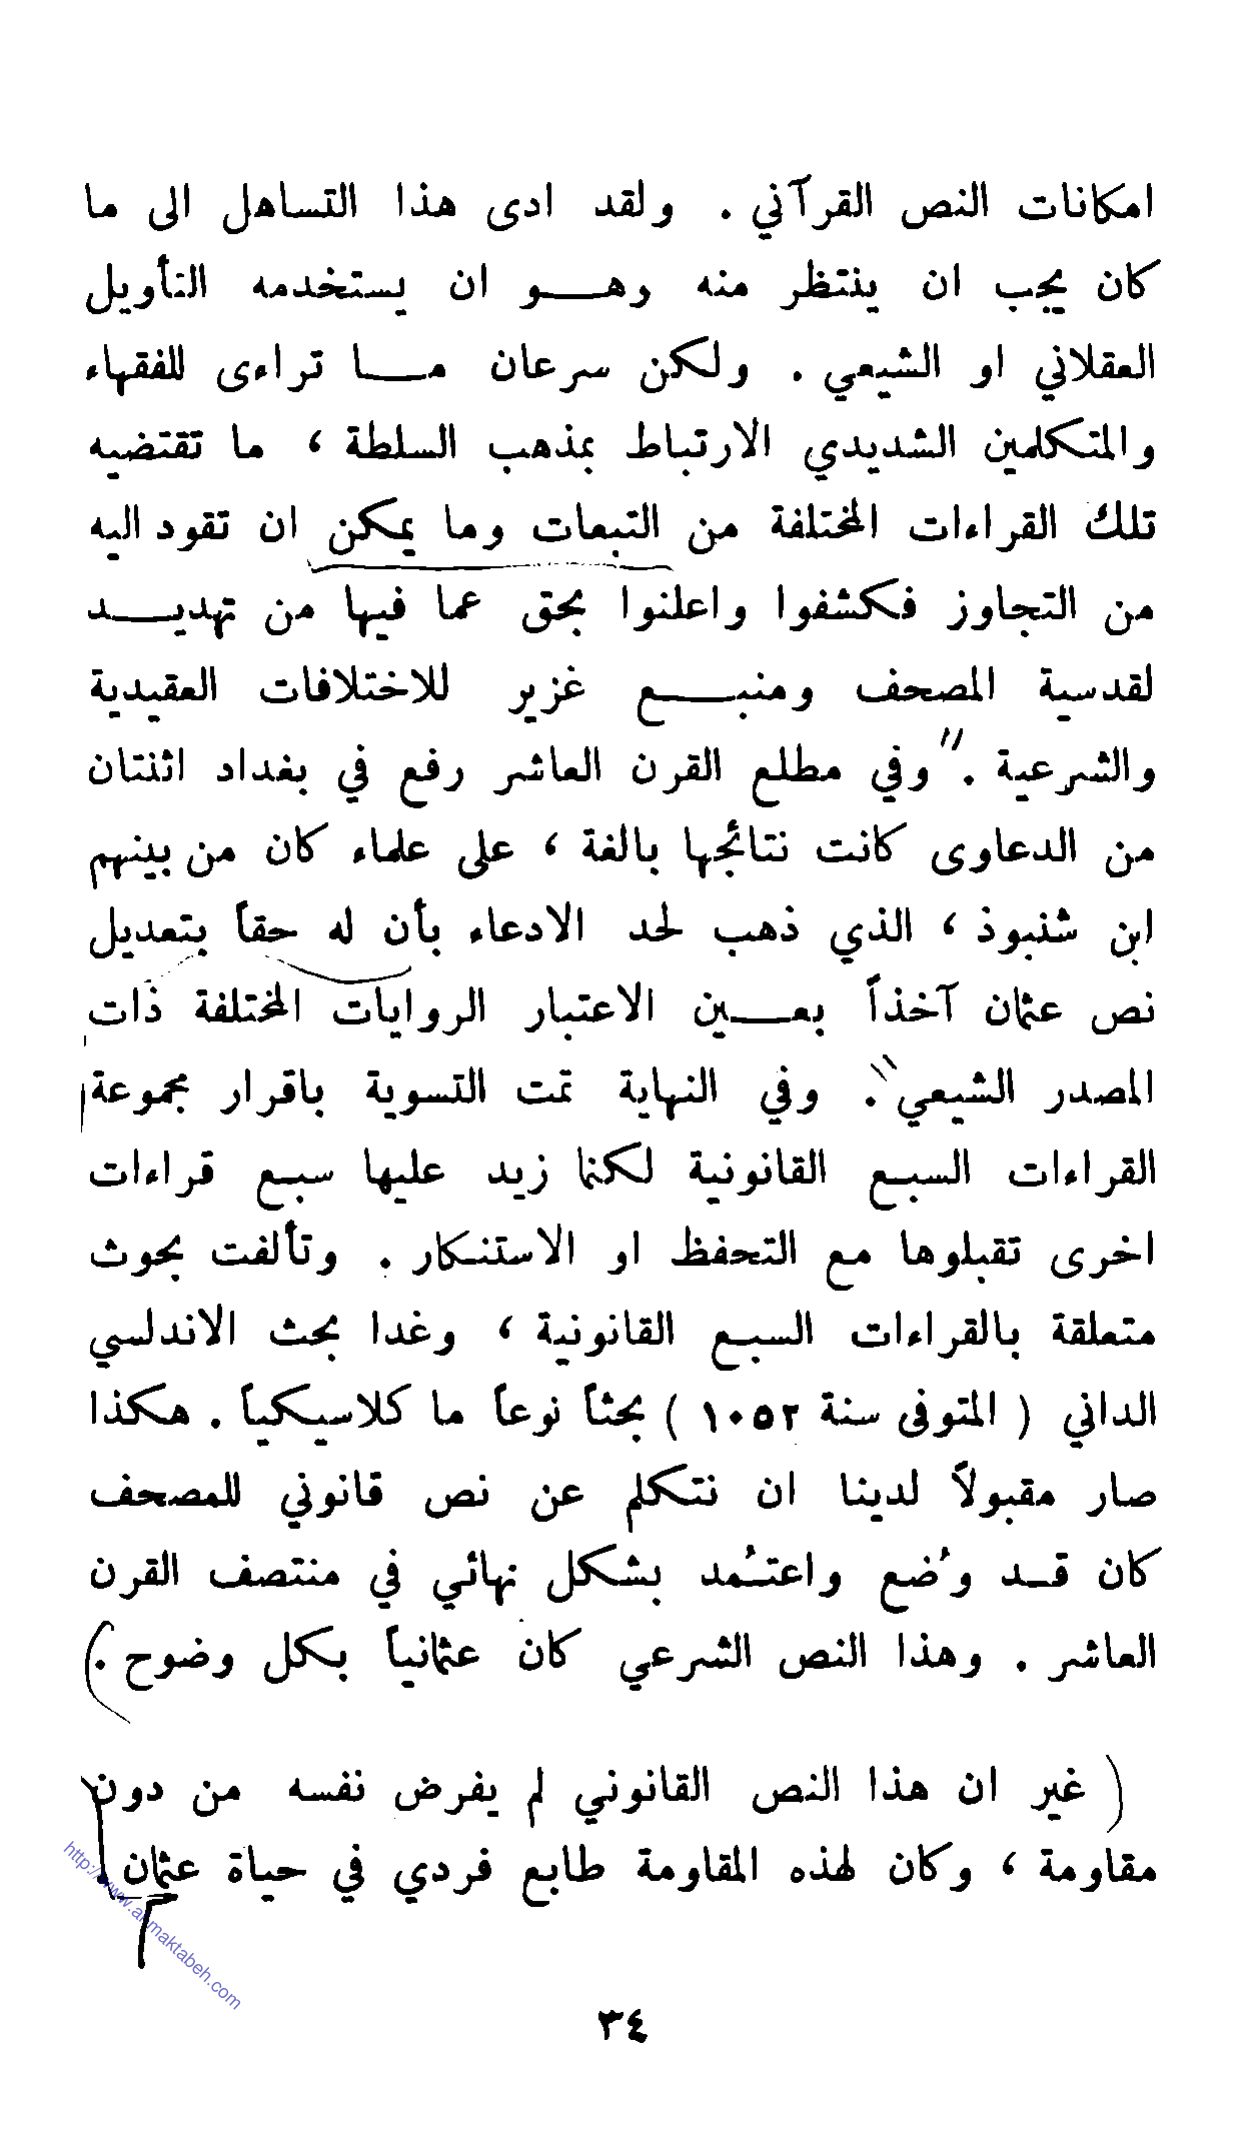 امكانات النص القرآني . ولقد ادى هذا التساهل الى ما
كان يجب ان ينتظر منه وهـــو ان يستخدمه التأويل
العقلاني او الشيعي . ولكن سرعان مـــا تراءى للفقهاء
والمتكلمين الشديدي الارتباط بمذهب السلطة ، ما تقتضيه
تلك القراءات المختلفة من التبعات وما يمكن ان تقود اليه
من التجاوز فكشفوا واعلنوا بحق عما فيها من تهديـــد
لقدسية المصحف ومنبـــع غزير للاختلافات العقيدية
والشرعية . " وفي مطلع القرن العاشر رفع في بغداد اثنتان
من الدعاوى كانت نتائجها بالغة ، على علماء كان من بينهم
ابن شنبوذ ، الذي ذهب لحد الادعاء بأن له حقاً بتعديل
نص عثمان آخذاً بعـــين الاعتبار الروايات المختلفة ذات
المصدر الشيعي " . وفي النهاية تمت التسوية باقرار مجموعة
القراءات السبع القانونية لكنما زيد عليها سبع قراءات
اخرى تقبلوها مع التحفظ او الاستنكار . وتألفت بحوث
متعلقة بالقراءات السبع القانونية ، وغدا بحث الاندلسي
الداني ( المتوفى سنة ١٠٥٢ ) بحثاً نوعاً ما كلاسيكياً . هكذا
صار مقبولاً لدينا ان نتكلم عن نص قانوني للمصحف
كان قـد وُضع واعتـُمد بشكل نهائي في منتصف القرن
العاشر . وهذا النص الشرعي كان عثمانياً بكل وضوح . )
( غير ان هذا النص القانوني لم يفرض نفسه من دون
مقاومة ، وكان لهذه المقاومة طابع فردي في حياة عثمان
http://www.al-maktabeh.com
٣٤